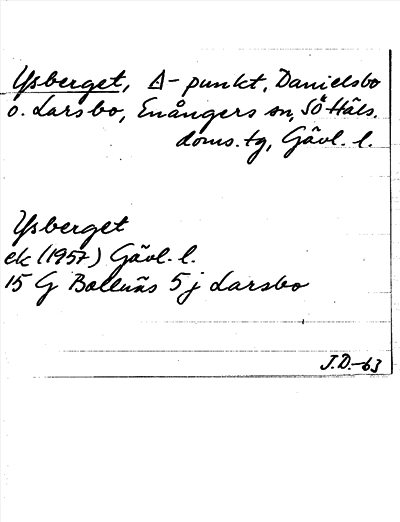 Ysberget, △-punkt, Danielsbo
o. Larsbo, Enångers sn, SÖ Häls.
doms.tg, Gävl. l.
Ysberget
ek (1957) Gävl. l.
15 G Bollnäs 5j Larsbo
J.D.-63